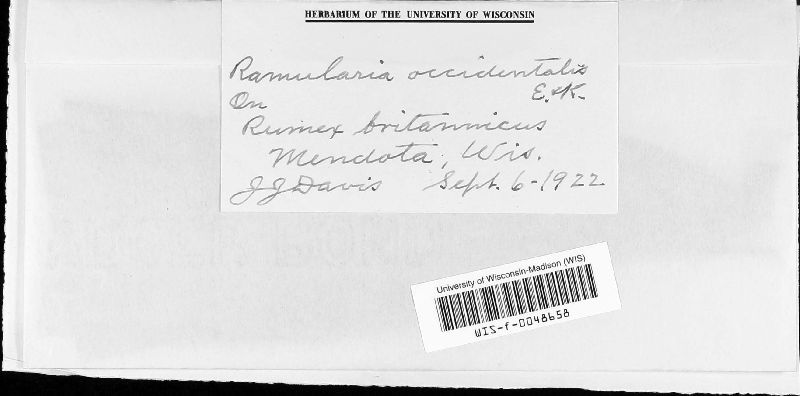 HERBARIUM OF THE UNIVERSITY OF WISCONSIN
Ramularia occidentalis
E. & K.
On
Rumex britannicus
Mendota, Wis.
J J Davis Sept. 6-1922
University of Wisconsin-Madison (WIS)
WIS-f-0048658